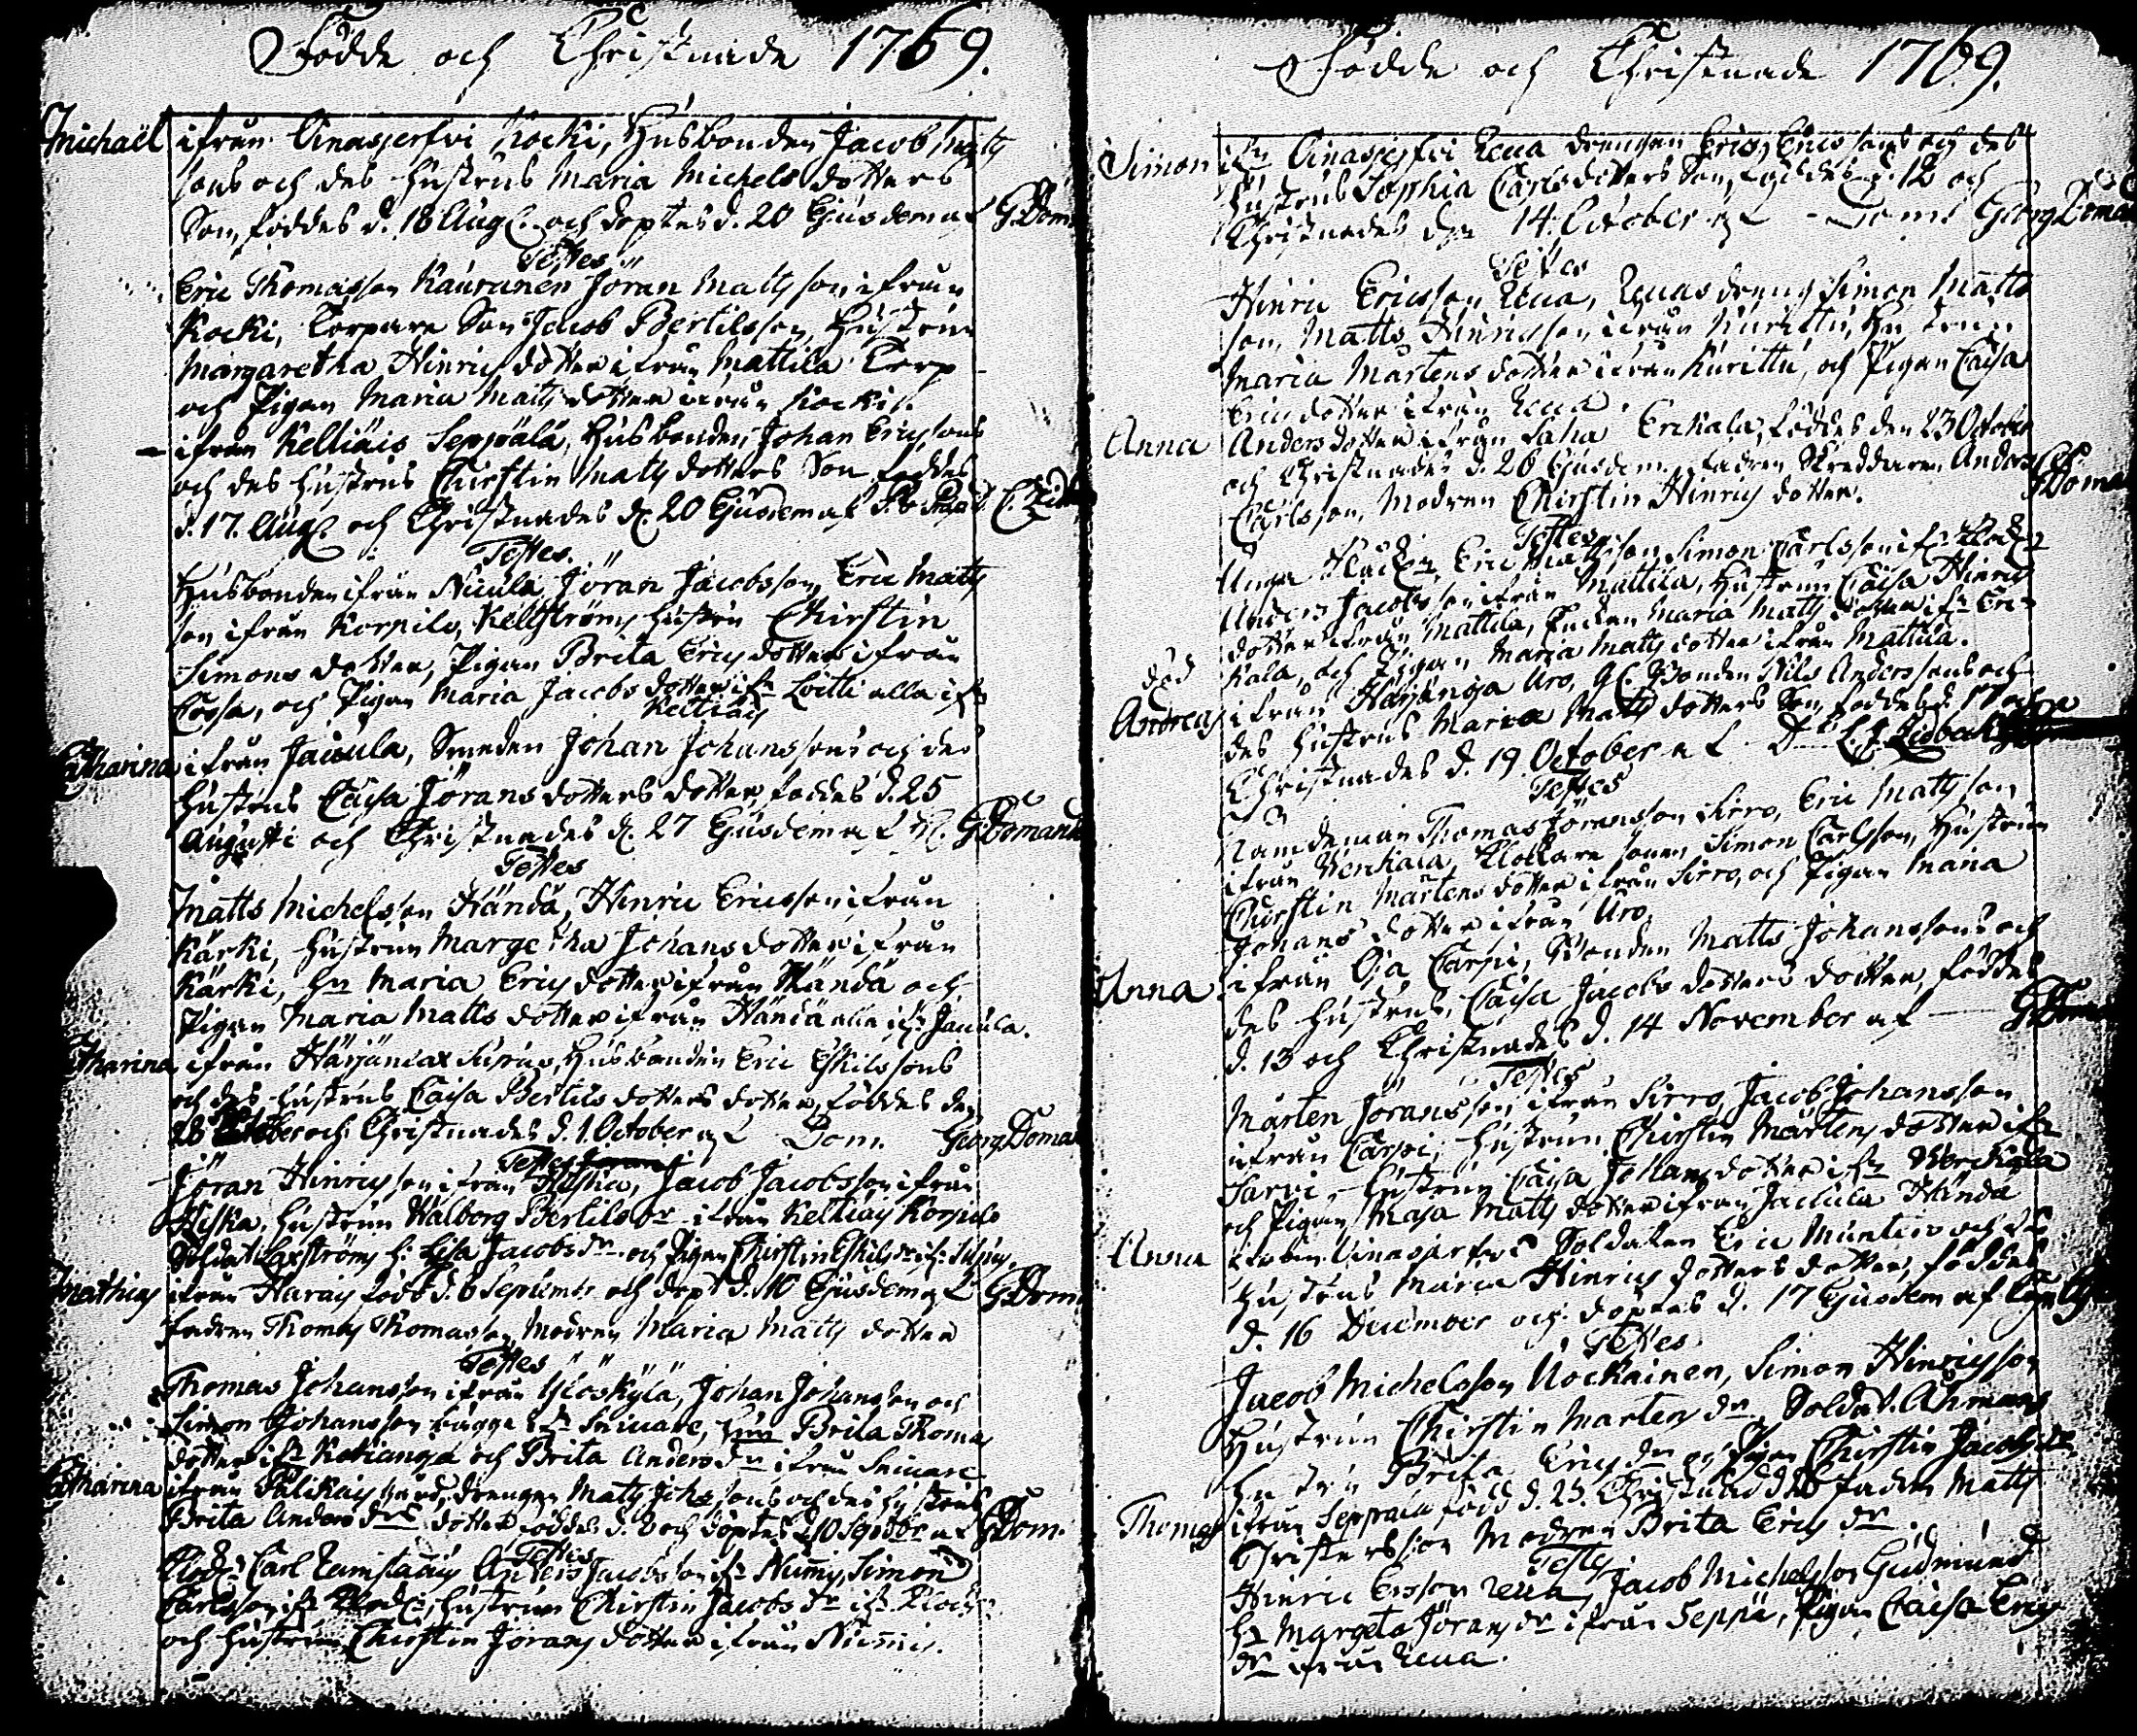 Födde och Christnade 1769.
Michaël ifrån Ainasjerfvi Kocki, Husbonden Jacob Matts
sons och des Hustrus Maria Michels dotters
Son, föddes d. 18 Aug. och döptes d. 20 Ejusdem af G. Dom.
Testes
Eric Thomasson Kauranen Jöran Matts son ifrån
Kocki, Torpare Son Jacob Bertilsson, Hustrun
Margaretha Hinrics dotter ifrån Mattila Torp
och Pigan Maria Matts dotter ifrån Kocki.
ifrån Kelliäis Seppälä, Husbonden Johan Erics sons
och des Hustrus Chirstin Matts dotters Son föddes
d. 17. Aug. och Christnades d. 20 Ejusdem af
Testes.
Husbonden ifrån Nicula Jöran Jacobsson, Eric Matts
son ifrån Korpilo, Kellströms Hustru Chirstin
Simons dotter, Pigan Brita Erics dotter ifrån
och Pigan Maria Jacobs dotter ifn Loitti alla ifn
Keltiäis
Catharina ifrån Jaucula, Smeden Johan Johanssons och des
Hustrus Caisa Jörans dotters dotter, föddes d. 25
Augusti och Christnades d. 27 Ejusdem af H. G. Domand
Testes
Matts Michelsson Händä, Hinric Ericsson ifrån
Kärki, Hustrun Margetha Johans dotter ifrån
Kärki, Hn Maria Erics dotter ifrån Händä och
Pigan Maria Matts dotter ifrån Händä alla ifn Jaucula.
tharina ifrån Harjunciax Husbonden Eric Eskilssons
och des Hustrus Caisa Bertils dotters dotter, föddes den
28 och Christnades d. 1. October af Dom. Georg Doma
Testes
Jöran Hinricsson ifrån Hiska, Jacob Jacobsson ifrån
Hiska, Hustrun Walborg Bertils dr ifrån Keltiäis Korpilo
Soldat Laxströms h: Lisa Jacobs dr och Pigan Chirstin Eskils dr
Mathias ifrån Harais född d. 6 September och döpt d. 10 Ejusdem af G. Dom.
Fadren Thomas Thomasson, Modren Maria Matts dotter
Testes
Thomas Johansson ifrån Ylöskylä, Johan Johansson och
Simon Johansson bägge ifn Hun Brita Thomas
dotter ifn och Brita Anders dr ifrån
Catharina ifrån Pälikäis gård, drengen Matts Johssons och des Hustrus
Brita Anders drs dotter föddes d. 2 och döptes d. 10 Septbr af G. Dom.
Testes
Carl Anders Jacobsson ifn Numis, Simon
Carlsson ifn Hustrun Chirstin Jacobs dr ifn
och Hustrun Chirstin Jörans dotter ifrån
Födde och Christnade 1769.
Simon ifn Ainasjerfvi Reua drengen Eric Ericssons och des
Hustrus Sophia Carlsdotters Son, föddes d. 12 och
Christnades den 14. October af Georg Doma
Testes
Hinric Ericsson Reua, Reuas dreng Simon Matts
son, Matts Hinricsson ifrån Kurittu, Hustrun
Maria Mårtens dotter ifrån Kurittu, och Pigan Caisa
Erics dotter ifrån Reua.
Anna Anders dotter ifrån Saha Erikala, föddes den 23 October
och Christnades d. 26 Ejusdem. Fadren Skreddaren Anders
Carlsson, Modren Chirstin Hinrics dotter. G. Doma
Testes
Unga Eric Mattsson, Simon Carlsson ifn
Anders Jacobsson ifrån Mattila, Hustrun Caisa Hinrics
dotter ifrån Mattila, Enkan Maria Matts dotter ifn Eri-
kala, och Pigan Maria Matts dotter ifrån Mattila.
död
Andreas ifrån Harjungja Uro, Bonden Nils Anderssons och
des Hustrus Maria Matts dotters Son, föddes d. 17 och
Christnades d. 19. October af
Testes
Nämdeman Thomas Jöransson Sirro, Eric Matts son
ifrån Klockare sonen Simon Carlsson, Hustrun
Chirstin Mårtens dotter ifrån Sirro, och Pigan Maria
Johans dotter ifrån Uro
Anna ifrån Oja Carpi, Bonden Matts Johanssons och
des Hustrus, Caisa Jacobs dotters dotter, föddes
d. 13 och Christnades d. 14 November af G. Dom
Testes
Mårten Jöransson ifrån Sirro, Jacob Johansson
ifrån Carpi, Hustrun Chirstin Mårtens dotter ifn
Sarvi, Hustrun Caisa Johans dotter ifn
och Pigan Maja Matts dotter ifrån Jaucula Händä
Anna ifrån Ainasjerfvi Soldaten Eric Munters och des
Hustrus Maria Hinrics dotters dotter, föddes
d. 16 December och döptes d. 17 Ejusdem af
Testes
Jacob Michelsson Nockainen, Simon Hinricsson
Hustrun Chirstin Mårtens dr. Soldat. Ahmans
Hustru Brita Erics dr och Pigan Chirstin Jacobs dr
Thomas ifrån Seppälä född d. 25. Christnad d. 26 fadren Matts
Christersson Modren Brita Erics dr.
Testes
Hinric Ersson Reua, Jacob Michelsson Gudmund
Hu Margeta Jörans dr ifrån Seppä, Pigan Caisa Erics
dr ifrån Reua.